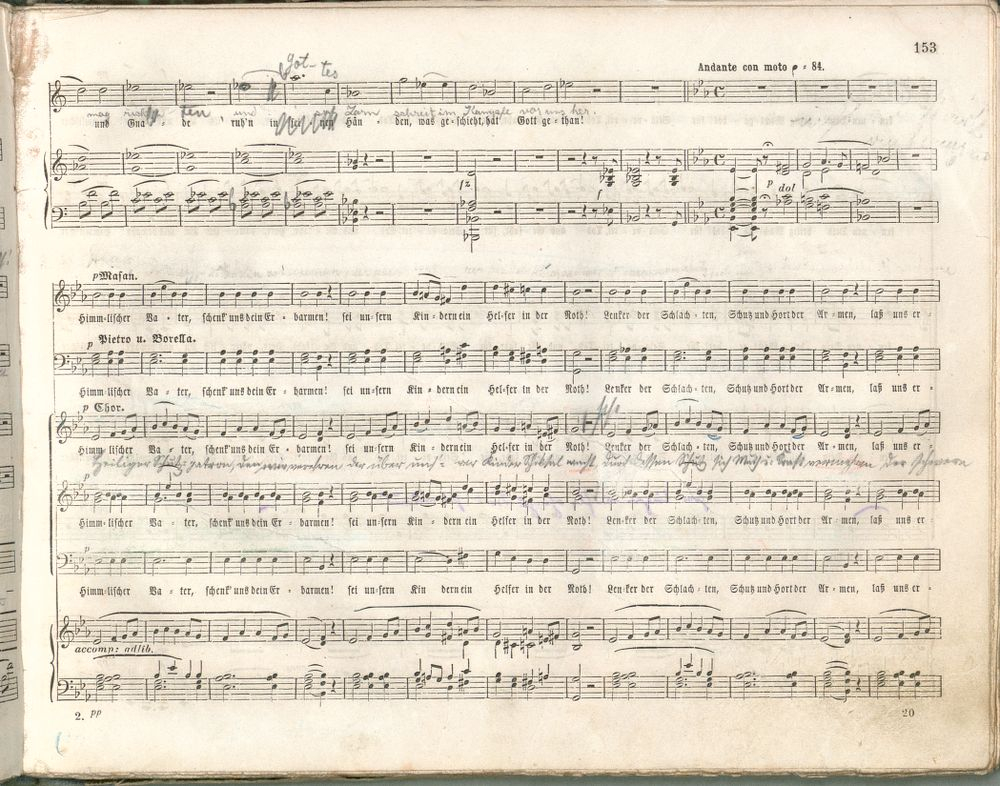 153
Andante con moto = 84.
Got-tes
mag ten, und Zorn schreit im Kampfe vor uns her.
und Gna - de ruh'n in Hän - den, was ge-schieht, hat Gott ge-than!
p dol
p Masan.
Himm-lischer Va - ter, schenk' uns dein Er - barmen! sei un-sern Kin - dern ein Hel-fer in der Noth! Lenker der Schlach - ten, Schutz und Hort der Ar - men, laß uns er -
p Pietro u. Borella.
Himm-lischer Va - ter, schenk' uns dein Er - barmen! sei un-sern Kin - dern ein Hel-fer in der Noth! Lenker der Schlach - ten, Schutz und Hort der Ar - men, laß uns er -
p Chor.
Himm-lischer Va - ter, schenk' uns dein Er - barmen! sei un-sern Kin - dern ein Hel-fer in der Noth! Lenker der Schlach - ten, Schutz und Hort der Ar - men, laß uns er -
Heiliger
p
Himm-lischer Va - ter, schenk' uns dein Er - barmen! sei un-sern Kin - dern ein Helfer in der Noth! Len-ker der Schlach - ten, Schutz und Hort der Ar - men, laß uns er -
p
Himm-lischer Va - ter, schenk' uns dein Er - barmen! sei un-sern Kin - dern ein Helfer in der Noth! Len-ker der Schlach - ten, Schutz und Hort der Ar - men, laß uns er -
accomp: adlib.
2. pp 20